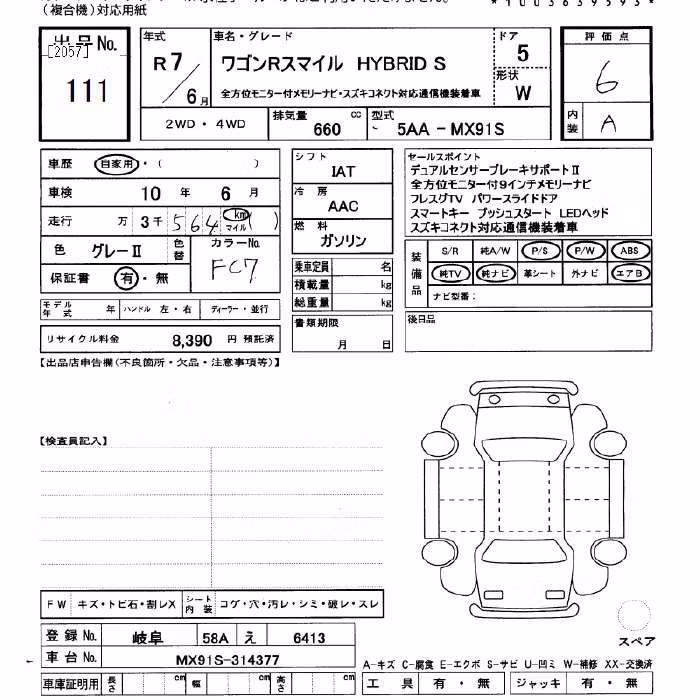 （複合機）対応用紙
*1003639593*
出品No.
[2057]
111
年式
R7
/6月
車名・グレード
ワゴンRスマイル HYBRID S
全方位モニター付メモリーナビ・スズキコネクト対応通信機装着車
ドア
5
形状
W
評価点
6
内装
A
2WD・4WD
排気量
660 cc
型式
5AA - MX91S
車歴 自家用・( )
車検 10 年 6 月
走行 万 3千 564 km マイル ( )
色 グレーⅡ 色替
カラーNo.
FC7
保証書 有・無
モデル年式 年 ハンドル 左・右 ディーラー・並行
リサイクル料金 8,390 円 預託済
シフト
IAT
冷房
AAC
燃料
ガソリン
乗車定員 名
積載量 kg
総重量 kg
書類期限
月 日
セールスポイント
デュアルセンサーブレーキサポートⅡ
全方位モニター付9インチメモリーナビ
フレスグTV パワースライドドア
スマートキー プッシュスタート LEDヘッド
スズキコネクト対応通信機装着車
装備品
S/R 純A/W P/S P/W ABS
純TV 純ナビ 革シート 外ナビ エアB
ナビ型番：
後日品
【出品店申告欄(不良箇所・欠品・注意事項等)】
【検査員記入】
FW キズ・トビ石・割レX シート内装 コゲ・穴・汚レ・シミ・破レ・スレ
登録No. 岐阜 58A え 6413
車台No. MX91S-314377
車庫証明用 長さ cm 幅 cm 高さ cm
スペア
A-キズ C-腐食 E-エクボ S-サビ U-凹ミ W-補修 XX-交換済
工具 有・無 ジャッキ 有・無